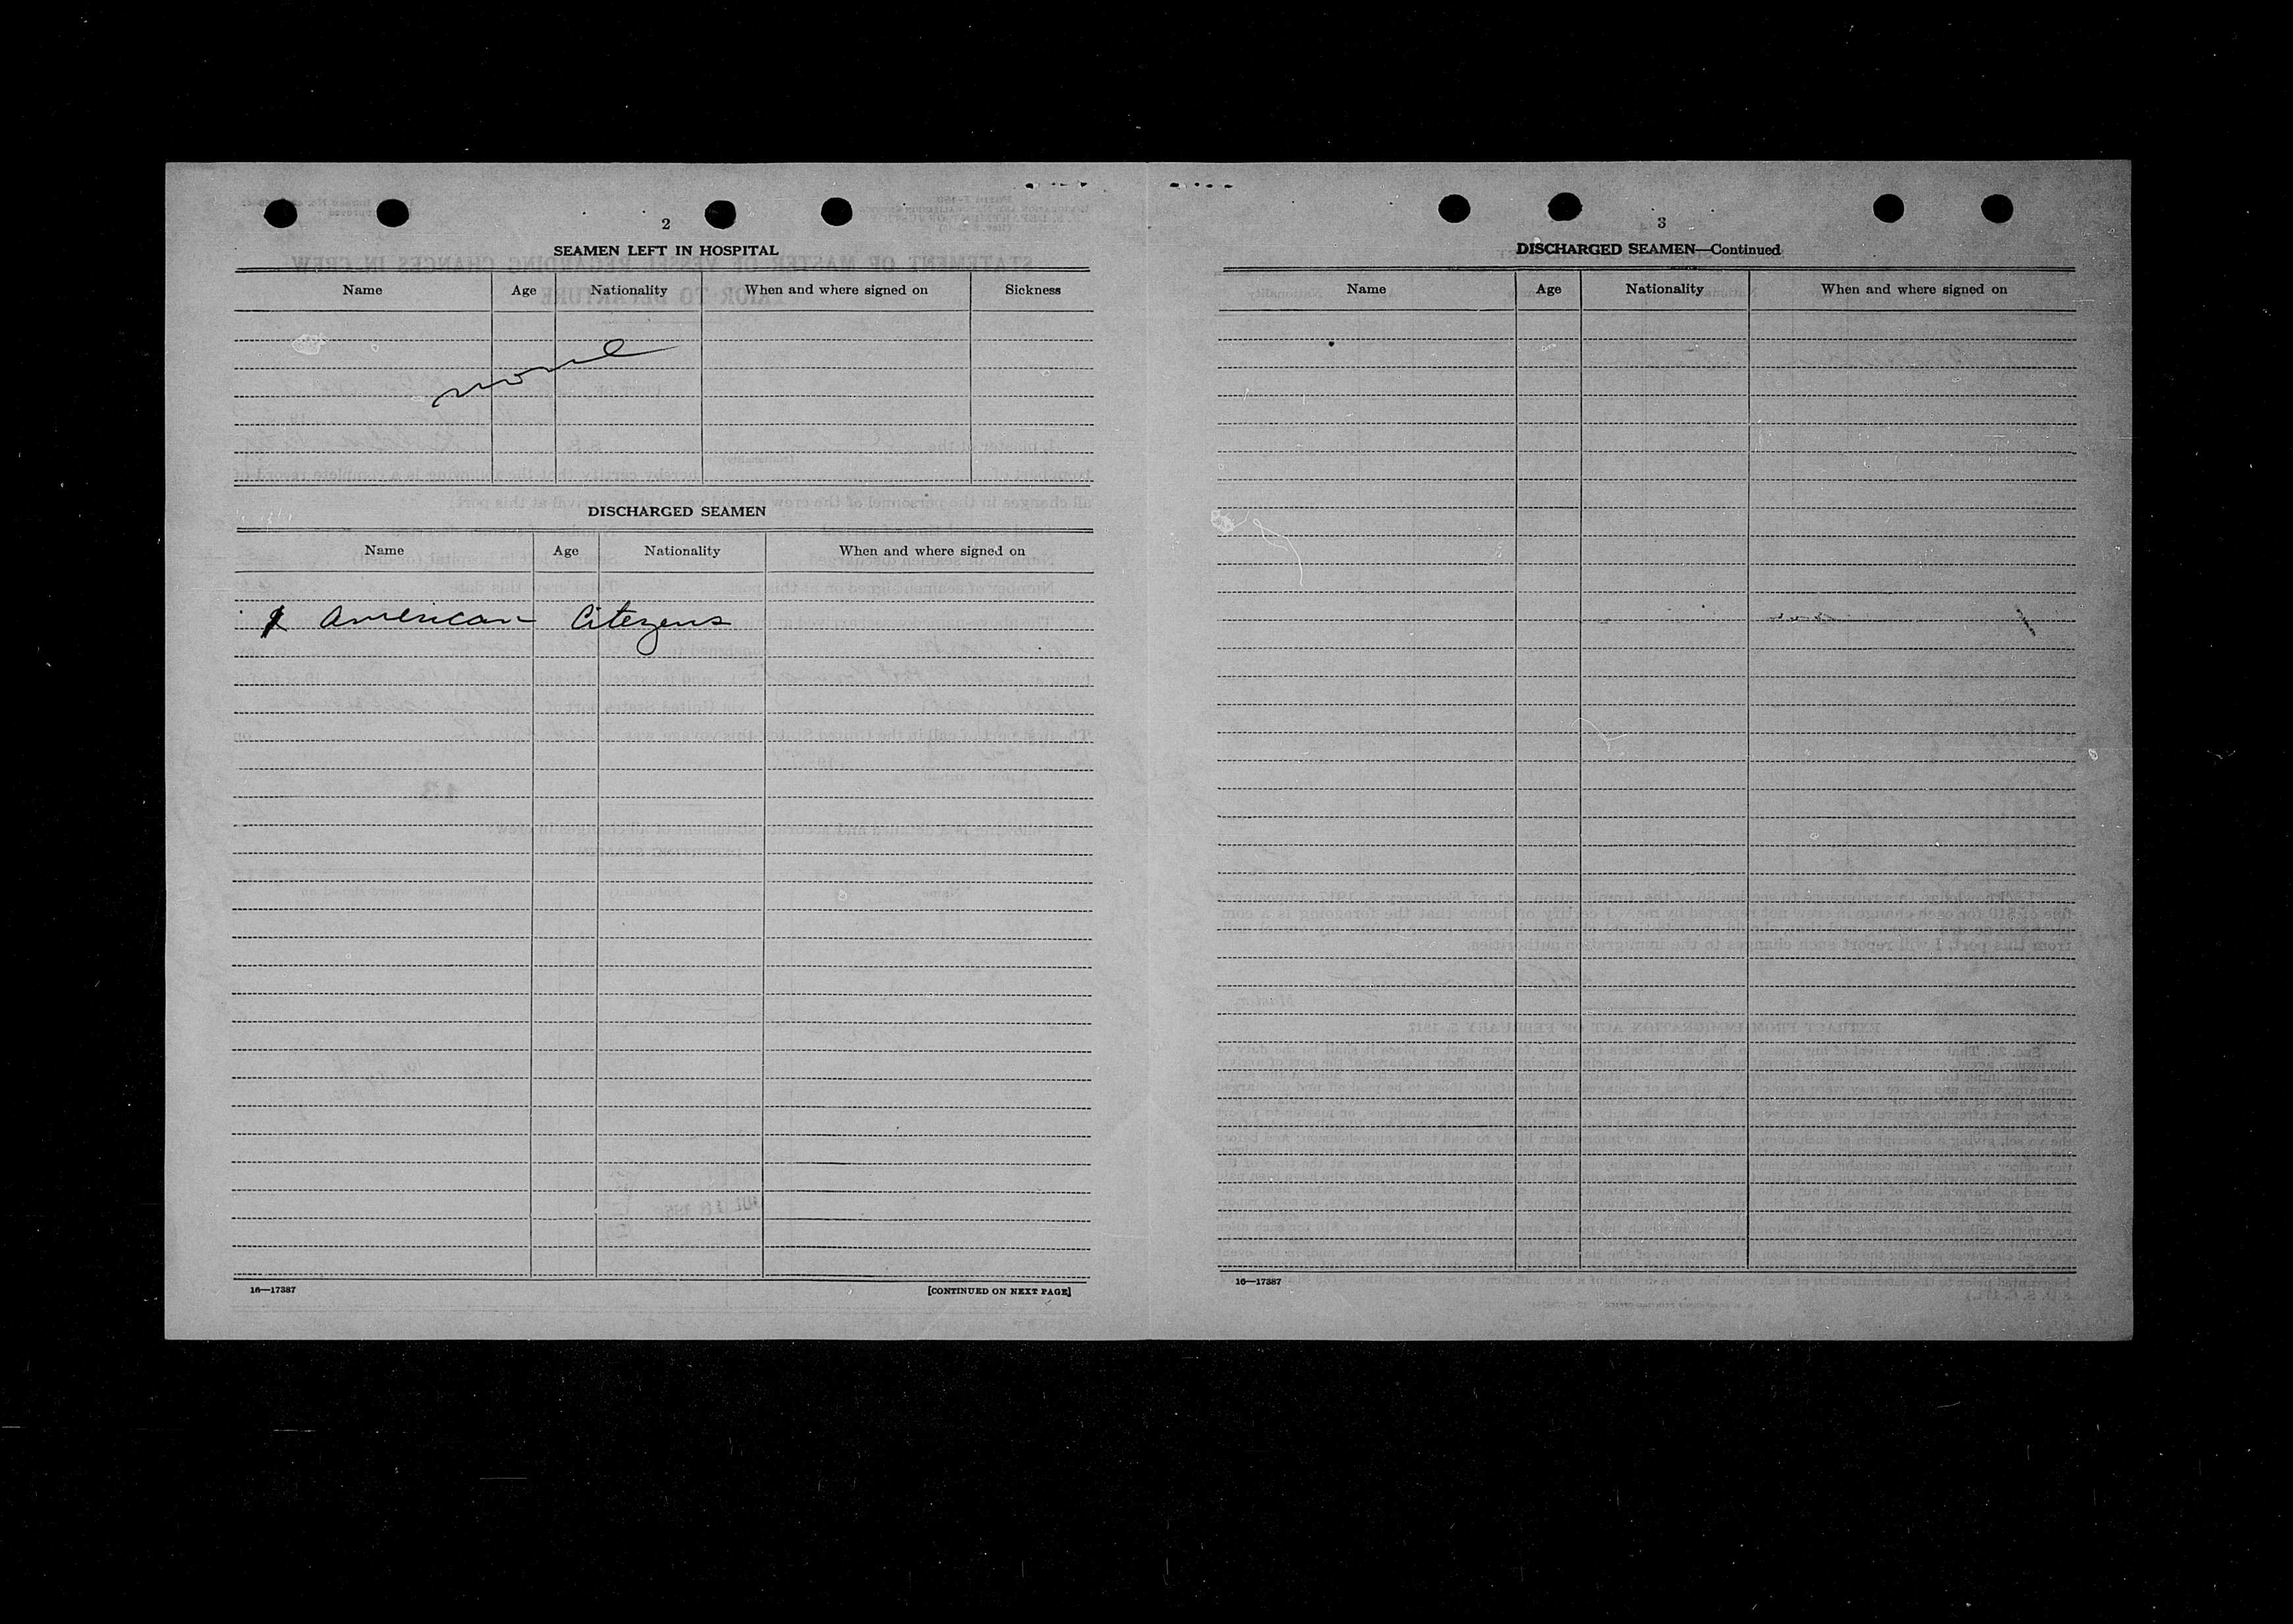 2
SEAMEN LEFT IN HOSPITAL
Name Age Nationality When and where signed on Sickness
none
DISCHARGED SEAMEN
Name Age Nationality When and where signed on
American Citezens
16—17387 [CONTINUED ON NEXT PAGE]
3
DISCHARGED SEAMEN—Continued
Name Age Nationality When and where signed on
16—17387